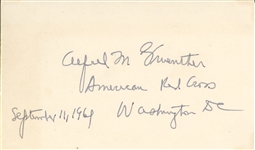 Alfred M Gruenther
American Red Cross
September 11, 1961 Washington DC